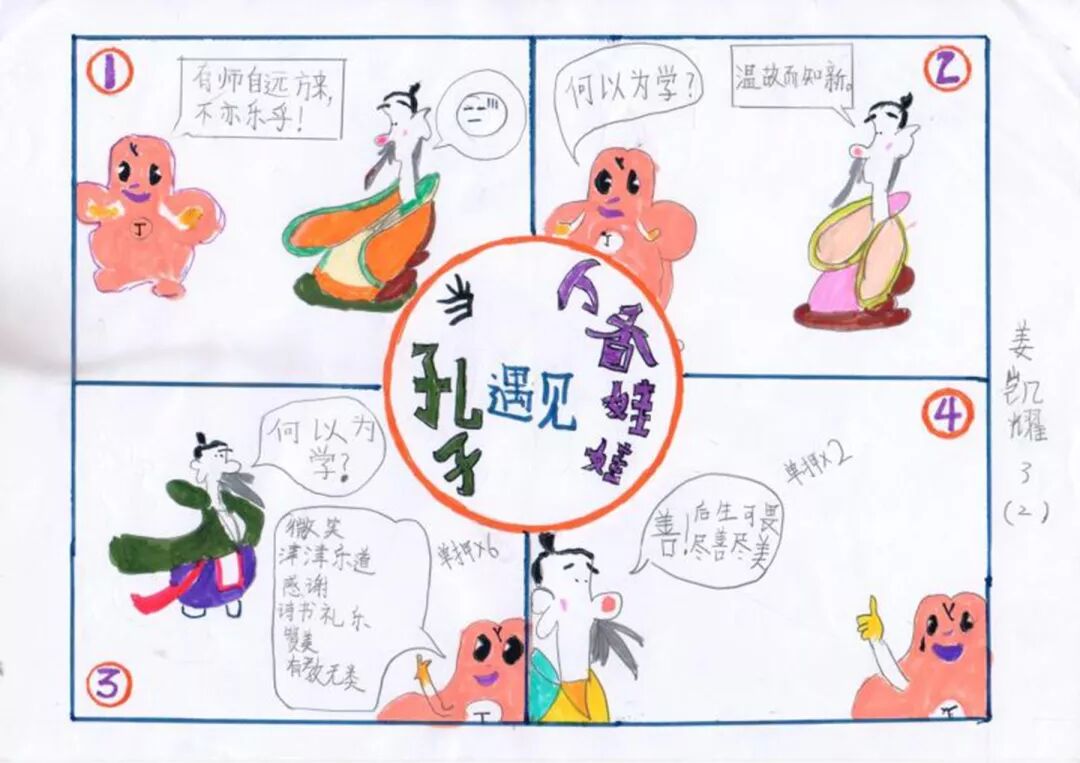 1
有师自远方来,
不亦乐乎!
丁
2
何以为学?
温故而知新。
丁
当
孔子
遇见
娃娃
3
何以为
学?
微笑
津津乐道
感谢
诗书礼乐
赞美
有教无类
单押×6
丁
4
善!后生可畏
尽善尽美
单押×2
丁
姜凯耀
3
(2)